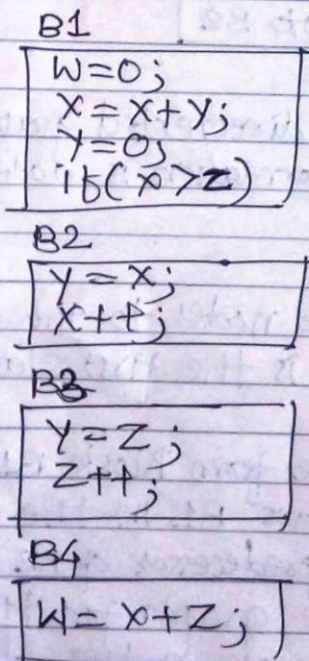 B1
W=0;
X=X+Y;
Y=0;
if(x>Z)
B2
Y=X;
X++;
B3
Y=Z;
Z++;
B4
W=X+Z;